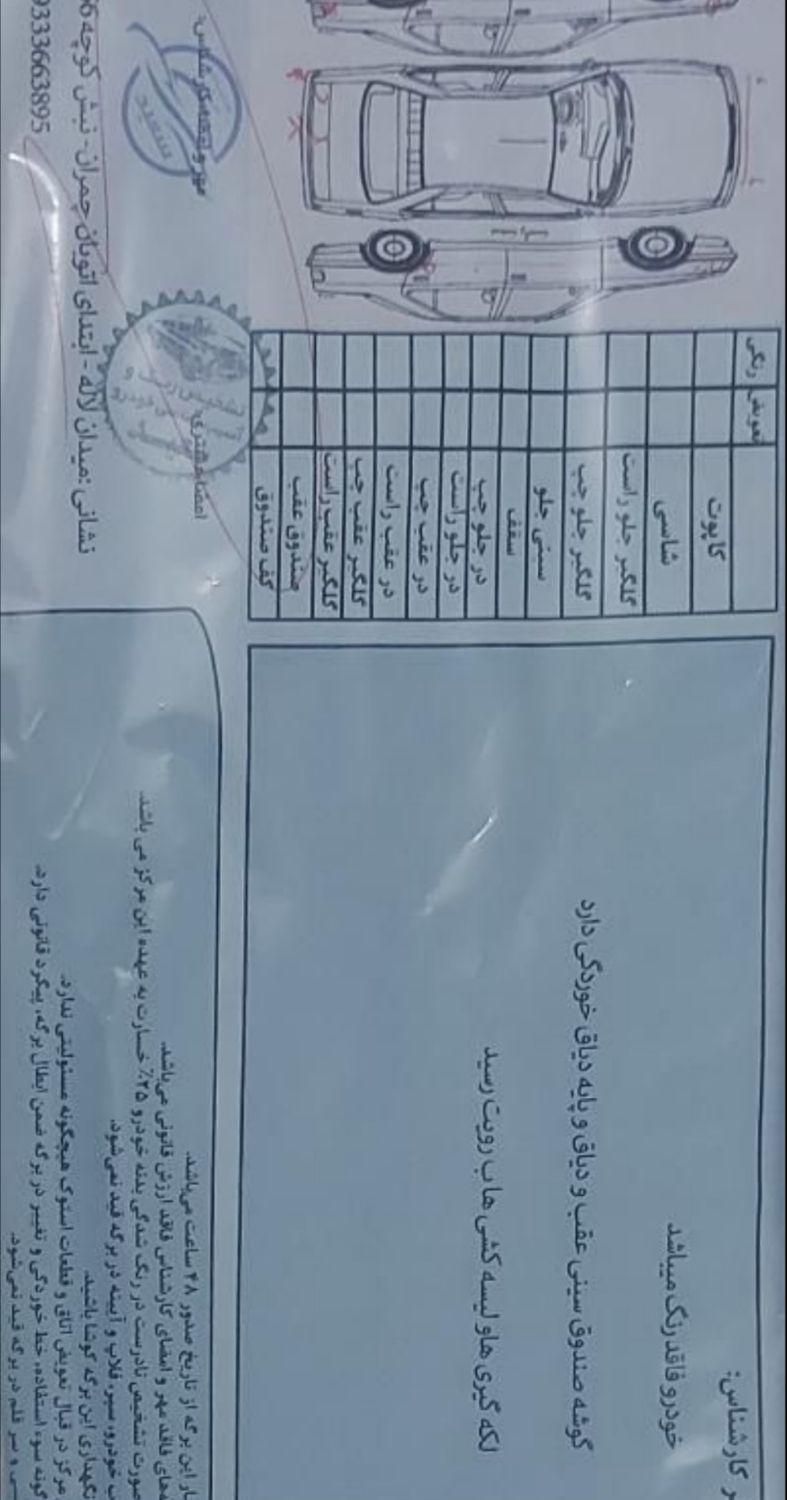 رنگی
تعویض
کاپوت
شاسی
گلگیر جلو راست
گلگیر جلو چپ
سینی جلو
سقف
در جلو چپ
در جلو راست
در عقب چپ
در عقب راست
گلگیر عقب چپ
گلگیر عقب راست
صندوق عقب
کف صندوق
کارشناس:
خودرو فاقد رنگ میباشد
گوشه صندوق سینی عقب و دیاق و پایه دیاق خوردگی دارد
لکه گیری ها و لیسه کشی ها ب رویت رسید
این برگه از تاریخ صدور ۴۸ ساعت می‌باشد.
فاقد مهر و امضای کارشناس فاقد ارزش قانونی می‌باشد.
صورت تشخیص نادرست در رنگ شدگی بدنه خودرو ۲۵٪ خسارت به عهده این مرکز می باشد.
خودرو، سپر، قلاب و آیینه در برگه قید نمی‌شود.
نگهداری این برگه کوشا باشید.
مرکز در قبال تعویض اتاق و قطعات استوک هیچگونه مسئولیتی ندارد.
گونه سوء استفاده، خط خوردگی و تغییر در برگه ضمن ابطال برگه، پیگرد قانونی دارد.
و سر قلم در برگه قید نمی‌شود.
مهر و امضا کارشناس:
سعید
امضا مشتری:
نشانی: میدان لاله - ابتدای اتوبان چمران - نبش کوچه 6
9333663895